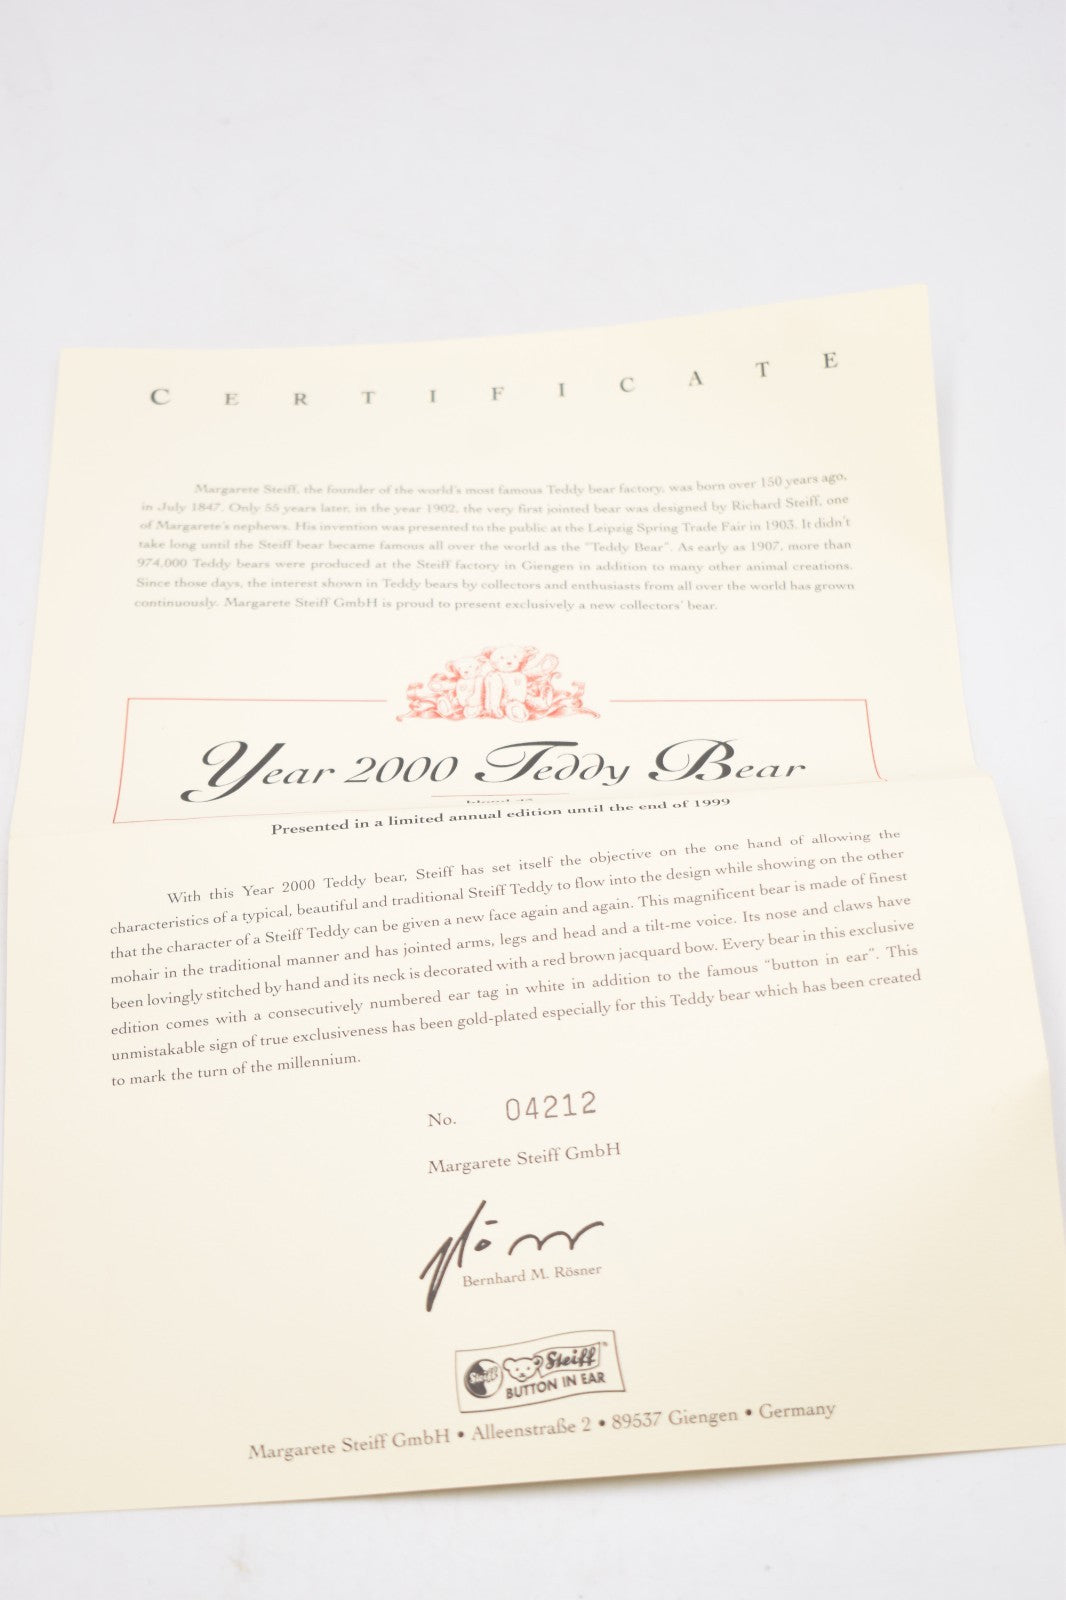 CERTIFICATE
Margarete Steiff, the founder of the world's most famous Teddy bear factory, was born over 150 years ago,
in July 1847. Only 55 years later, in the year 1902, the very first jointed bear was designed by Richard Steiff, one
of Margarete's nephews. His invention was presented to the public at the Leipzig Spring Trade Fair in 1903. It didn't
take long until the Steiff bear became famous all over the world as the "Teddy Bear". As early as 1907, more than
974,000 Teddy bears were produced at the Steiff factory in Giengen in addition to many other animal creations.
Since those days, the interest shown in Teddy bears by collectors and enthusiasts from all over the world has grown
continuously. Margarete Steiff GmbH is proud to present exclusively a new collectors' bear.
Year 2000 Teddy Bear
Presented in a limited annual edition until the end of 1999
With this Year 2000 Teddy bear, Steiff has set itself the objective on the one hand of allowing the
characteristics of a typical, beautiful and traditional Steiff Teddy to flow into the design while showing on the other
that the character of a Steiff Teddy can be given a new face again and again. This magnificent bear is made of finest
mohair in the traditional manner and has jointed arms, legs and head and a tilt-me voice. Its nose and claws have
been lovingly stitched by hand and its neck is decorated with a red brown jacquard bow. Every bear in this exclusive
edition comes with a consecutively numbered ear tag in white in addition to the famous "button in ear". This
unmistakable sign of true exclusiveness has been gold-plated especially for this Teddy bear which has been created
to mark the turn of the millennium.
No. 04212
Margarete Steiff GmbH
Bernhard M. Rösner
Steiff Steiff™
BUTTON IN EAR
Margarete Steiff GmbH • Alleenstraße 2 • 89537 Giengen • Germany